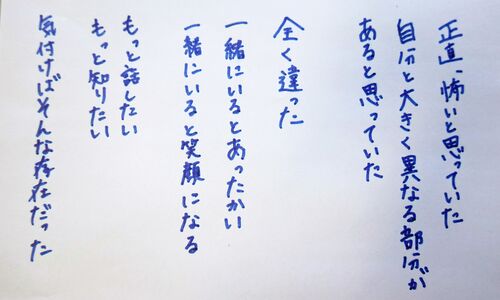 正直、怖いと思っていた
自分と大きく異なる部分が
あると思っていた
全く違った
一緒にいるとあったかい
一緒にいると笑顔になる
もっと話したい
もっと知りたい
気付けばそんな存在だった